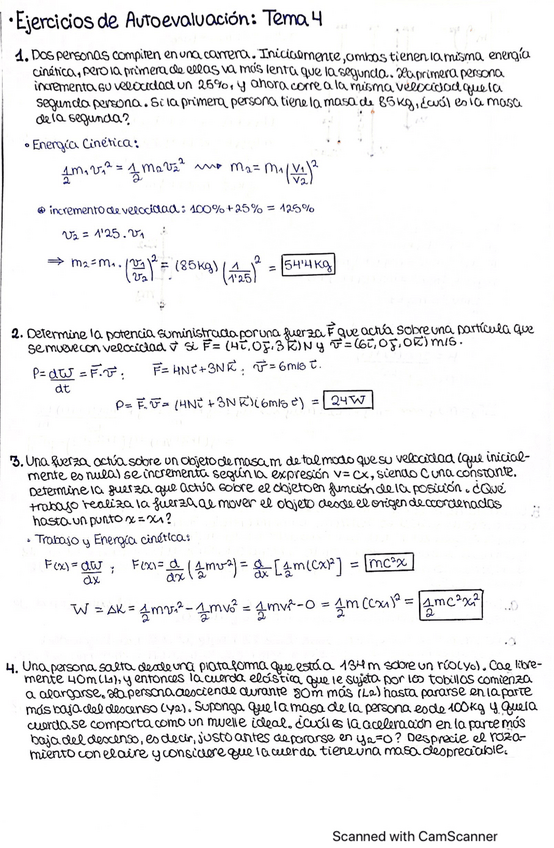 · Ejercicios de Autoevaluación: Tema 4
1. Dos personas compiten en una carrera. Inicialmente, ambas tienen la misma energía
cinética, pero la primera de ellas va más lenta que la segunda. La primera persona
incrementa su velocidad un 25%, y ahora corre a la misma velocidad que la
segunda persona. Si la primera persona tiene la masa de 85kg, ¿cuál es la masa
de la segunda?
◦ Energía Cinética:
1/2 m₁v₁² = 1/2 m₂v₂² ⇝ m₂ = m₁ (v₁/v₂)²
⊛ incremento de velocidad: 100% + 25% = 125%
v₂ = 1'25 · v₁
⇒ m₂ = m₁ · (v₁/v₂)² = (85kg) (1/1'25)² = 54'4 kg
2. Determine la potencia suministrada por una fuerza F⃗ que actúa sobre una partícula que
se mueve con velocidad v⃗ si F⃗ = (4i⃗, 0j⃗, 3k⃗) N y v⃗ = (6i⃗, 0j⃗, 0k⃗) m/s.
P = dW/dt = F⃗ · v⃗ ; F⃗ = 4Ni⃗ + 3Nk⃗ ; v⃗ = 6m/s i⃗.
P = F⃗ · v⃗ = (4Ni⃗ + 3Nk⃗) (6m/s i⃗) = 24W
3. Una fuerza actúa sobre un objeto de masa m de tal modo que su velocidad (que inicial-
mente es nula) se incrementa según la expresión v = Cx, siendo C una constante.
Determine la fuerza que actúa sobre el objeto en función de la posición. ¿Qué
trabajo realiza la fuerza al mover el objeto desde el origen de coordenadas
hasta un punto x = x₁?
◦ Trabajo y Energía cinética:
F(x) = dW/dx ; F(x) = d/dx (1/2 mv²) = d/dx [1/2 m(Cx)²] = mC²x
W = ΔK = 1/2 mv₁² - 1/2 mv₀² = 1/2 mv₁² - 0 = 1/2 m(Cx₁)² = 1/2 mC²x₁²
4. Una persona salta desde una plataforma que está a 134m sobre un río (y₀). Cae libre-
mente 40m (L₁), y entonces la cuerda elástica que le sujeta por los tobillos comienza
a alargarse. La persona desciende durante 80m más (L₂) hasta pararse en la parte
más baja del descenso (y₂). Suponga que la masa de la persona es de 100kg y que la
cuerda se comporta como un muelle ideal. ¿cuál es la aceleración en la parte más
baja del descenso, es decir, justo antes de pararse en y₂=0? Desprecie el roza-
miento con el aire y considere que la cuerda tiene una masa despreciable.
Scanned with CamScanner